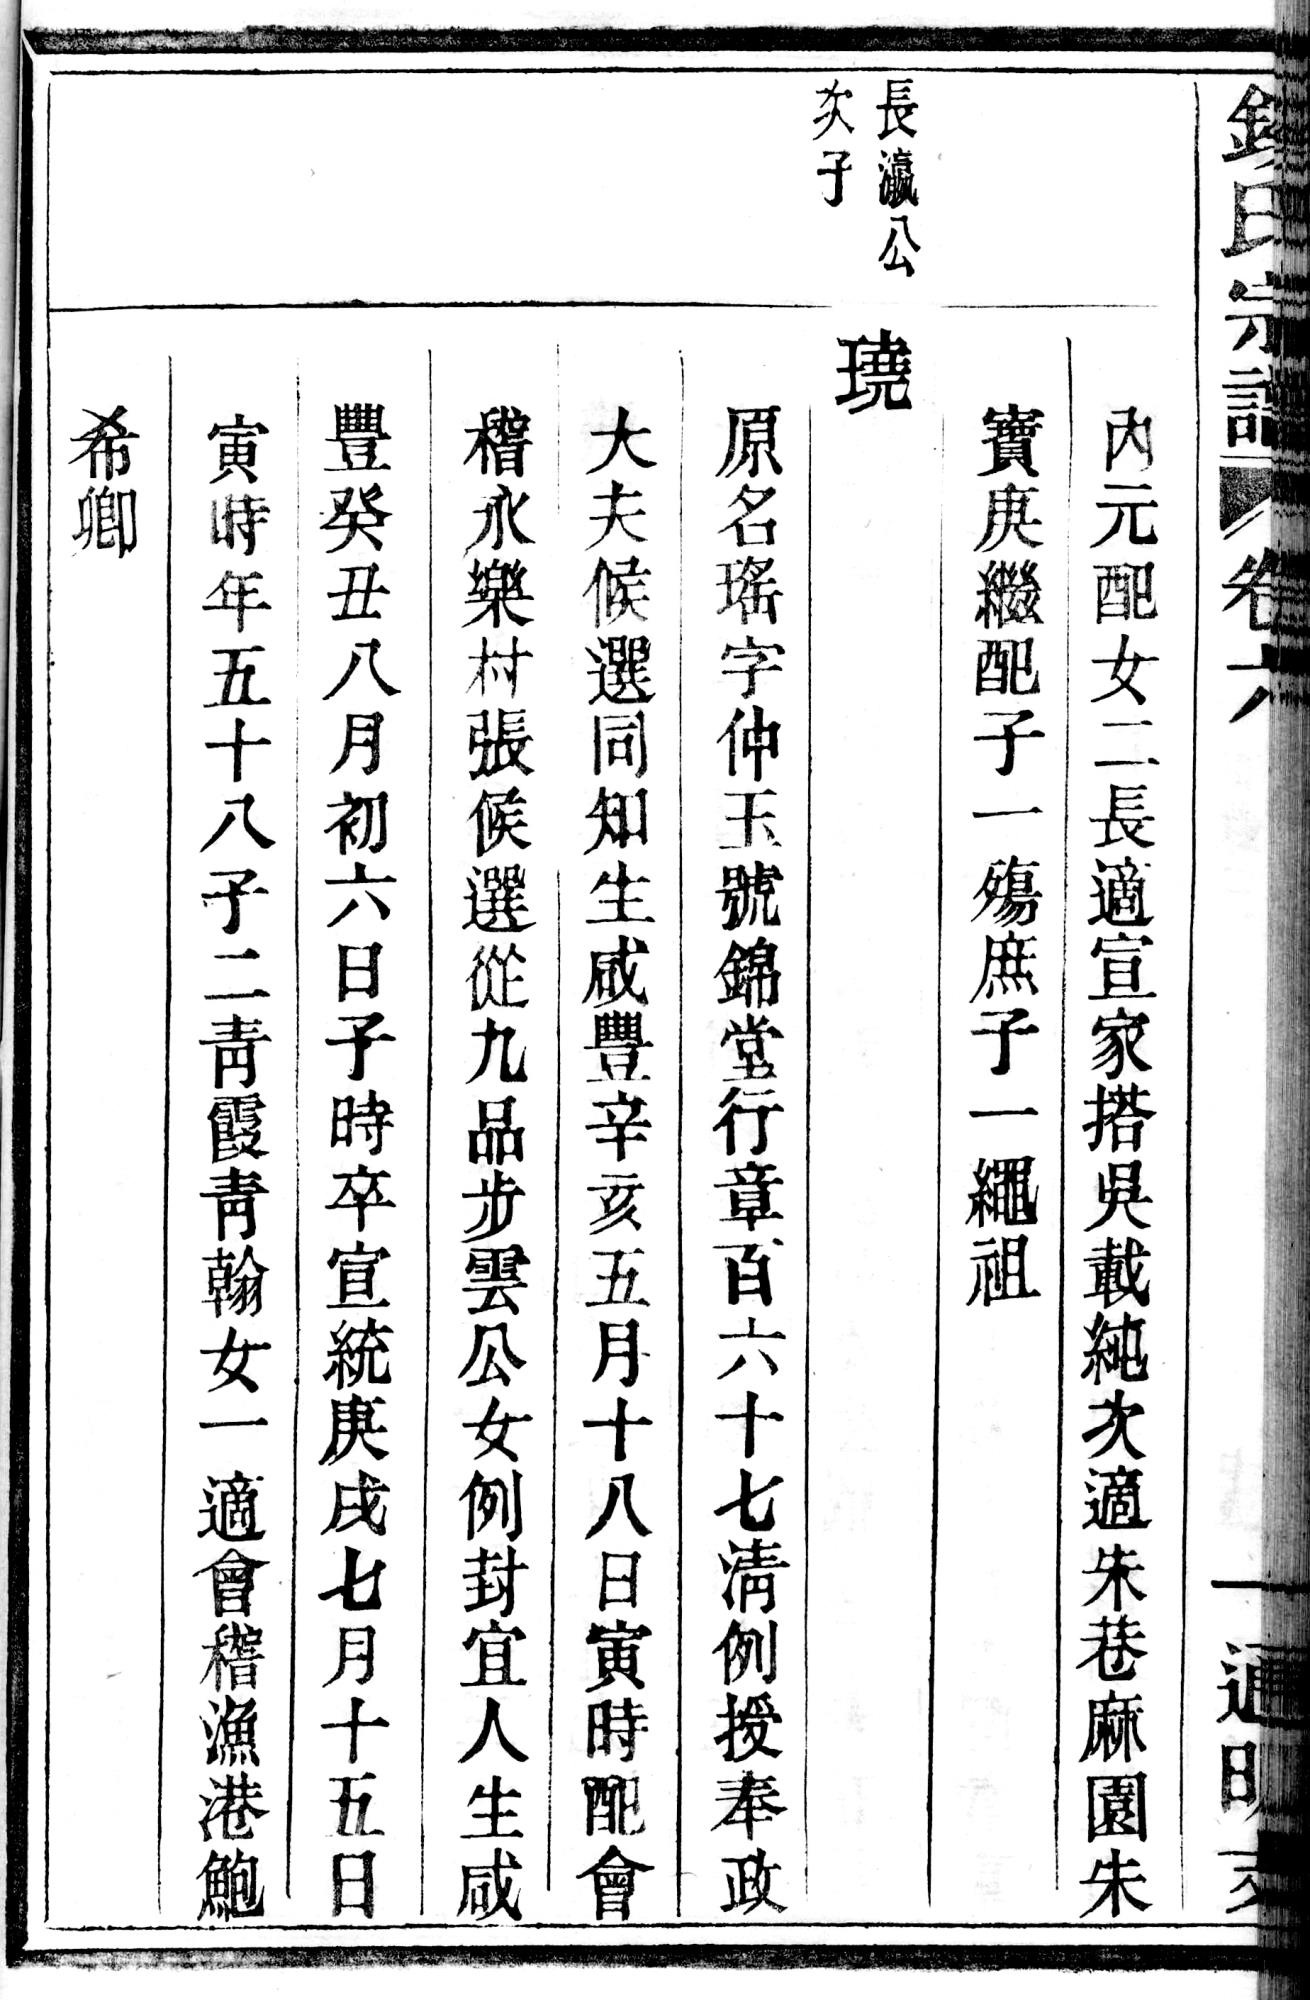 氏宗譜 卷六 一 通明支
內元配女二長適宣家搭吳載純次適朱巷麻園朱
寶庚繼配子一殤庶子一繩祖
長瀛公
次子
璄
原名瑤字仲玉號錦堂行章百六十七清例授奉政
大夫候選同知生咸豐辛亥五月十八日寅時配會
稽永樂村張候選從九品步雲公女例封宜人生咸
豐癸丑八月初六日子時卒宣統庚戌七月十五日
寅時年五十八子二青霞青翰女一適會稽漁港鮑
希卿